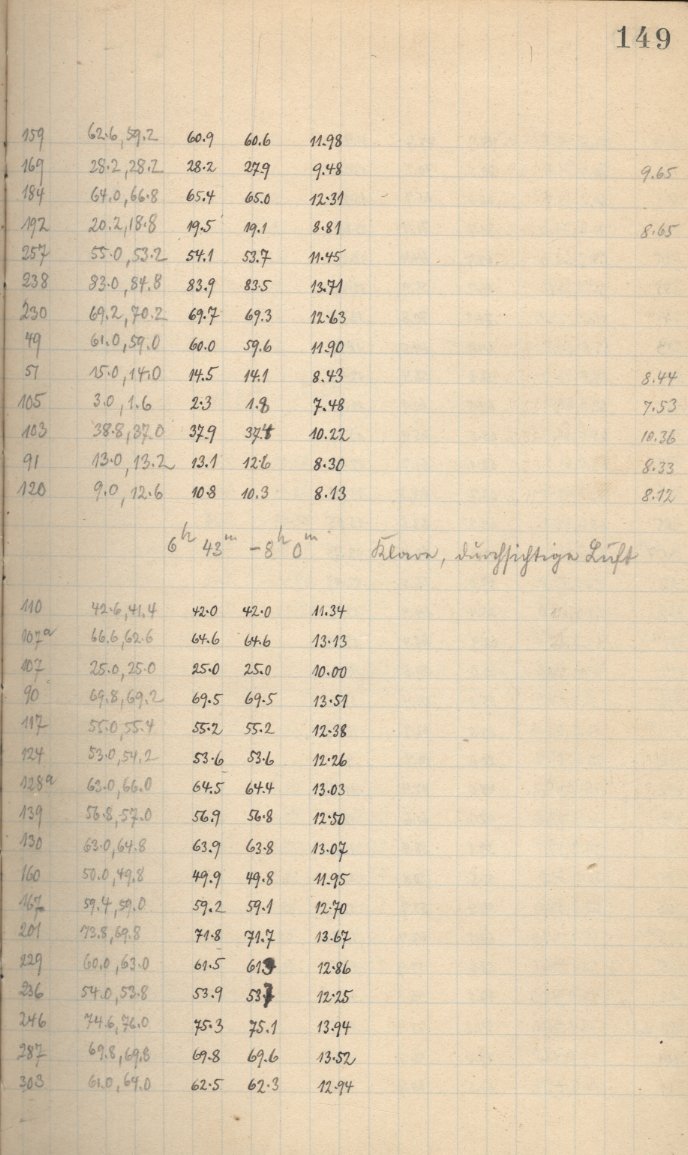 149
159 62.6, 59.2 60.9 60.6 11.98
169 28.2, 28.2 28.2 27.9 9.48 9.65
184 64.0, 66.8 65.4 65.0 12.31
192 20.2, 18.8 19.5 19.1 8.81 8.65
257 55.0, 53.2 54.1 53.7 11.45
238 83.0, 84.8 83.9 83.5 13.71
230 69.2, 70.2 69.7 69.3 12.63
49 61.0, 59.0 60.0 59.6 11.90
51 15.0, 14.0 14.5 14.1 8.43 8.44
105 3.0, 1.6 2.3 1.8 7.48 7.53
103 38.8, 37.0 37.9 37.4 10.22 10.36
91 13.0, 13.2 13.1 12.6 8.30 8.33
120 9.0, 12.6 10.8 10.3 8.13 8.12
6h 43m – 8h 0m Klare, durchsichtige Luft
110 42.6, 41.4 42.0 42.0 11.34
107a 66.6, 62.6 64.6 64.6 13.13
107 25.0, 25.0 25.0 25.0 10.00
90 69.8, 69.2 69.5 69.5 13.51
117 55.0, 55.4 55.2 55.2 12.38
124 53.0, 54.2 53.6 53.6 12.26
128a 63.0, 66.0 64.5 64.4 13.03
139 56.8, 57.0 56.9 56.8 12.50
130 63.0, 64.8 63.9 63.8 13.07
160 50.0, 49.8 49.9 49.8 11.95
167 59.4, 59.0 59.2 59.1 12.70
201 73.8, 69.8 71.8 71.7 13.67
229 60.0, 63.0 61.5 61.3 12.86
236 54.0, 53.8 53.9 53.7 12.25
246 74.6, 76.0 75.3 75.1 13.94
287 69.8, 69.8 69.8 69.6 13.52
303 61.0, 64.0 62.5 62.3 12.94